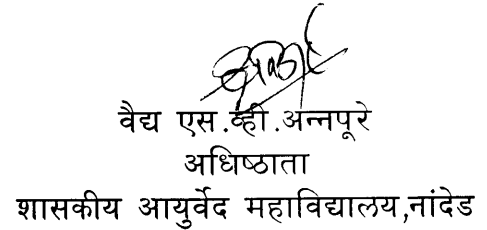 वैद्य एस.व्ही.अन्नपूरे
अधिष्ठाता
शासकीय आयुर्वेद महाविद्यालय,नांदेड